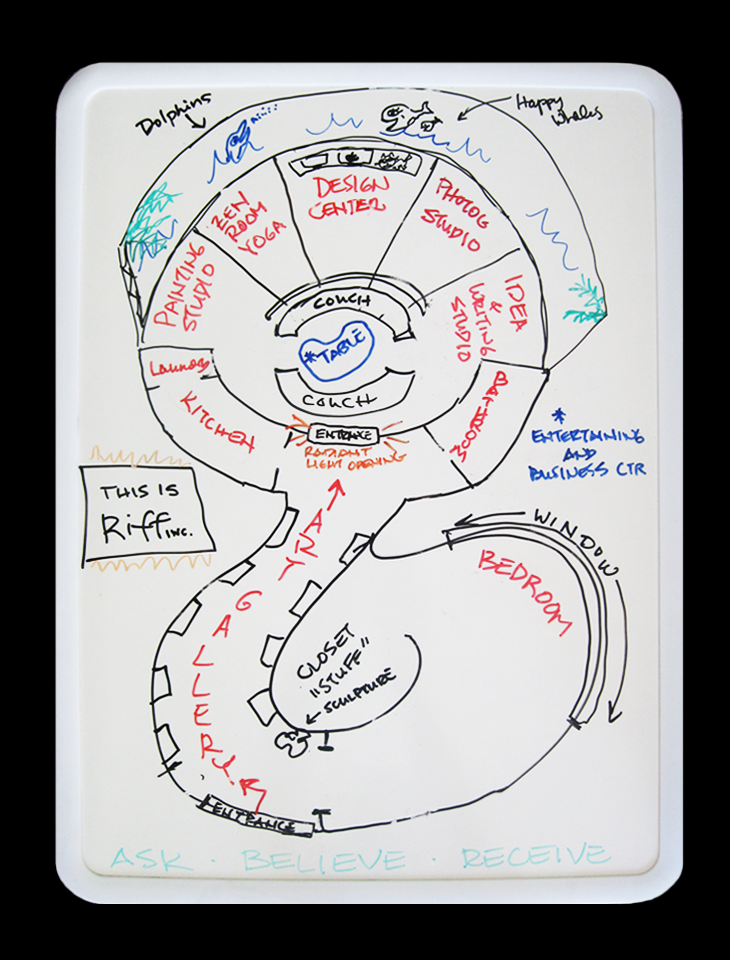 Dolphins
Happy
Whales
ZEN
ROOM
YOGA
DESIGN
CENTER
PHOTOG
STUDIO
PAINTING
STUDIO
IDEA
&
WRITING
STUDIO
COUCH
*TABLE
COUCH
Laundry
KITCHEN
BATHROOM
ENTRANCE
RADIANT
LIGHT OPENING
*
ENTERTAINING
AND
BUSINESS CTR
THIS IS
Riff INC.
ART GALLERY
WINDOW
BEDROOM
CLOSET
"STUFF"
SCULPTURE
ENTRANCE
ASK · BELIEVE · RECEIVE